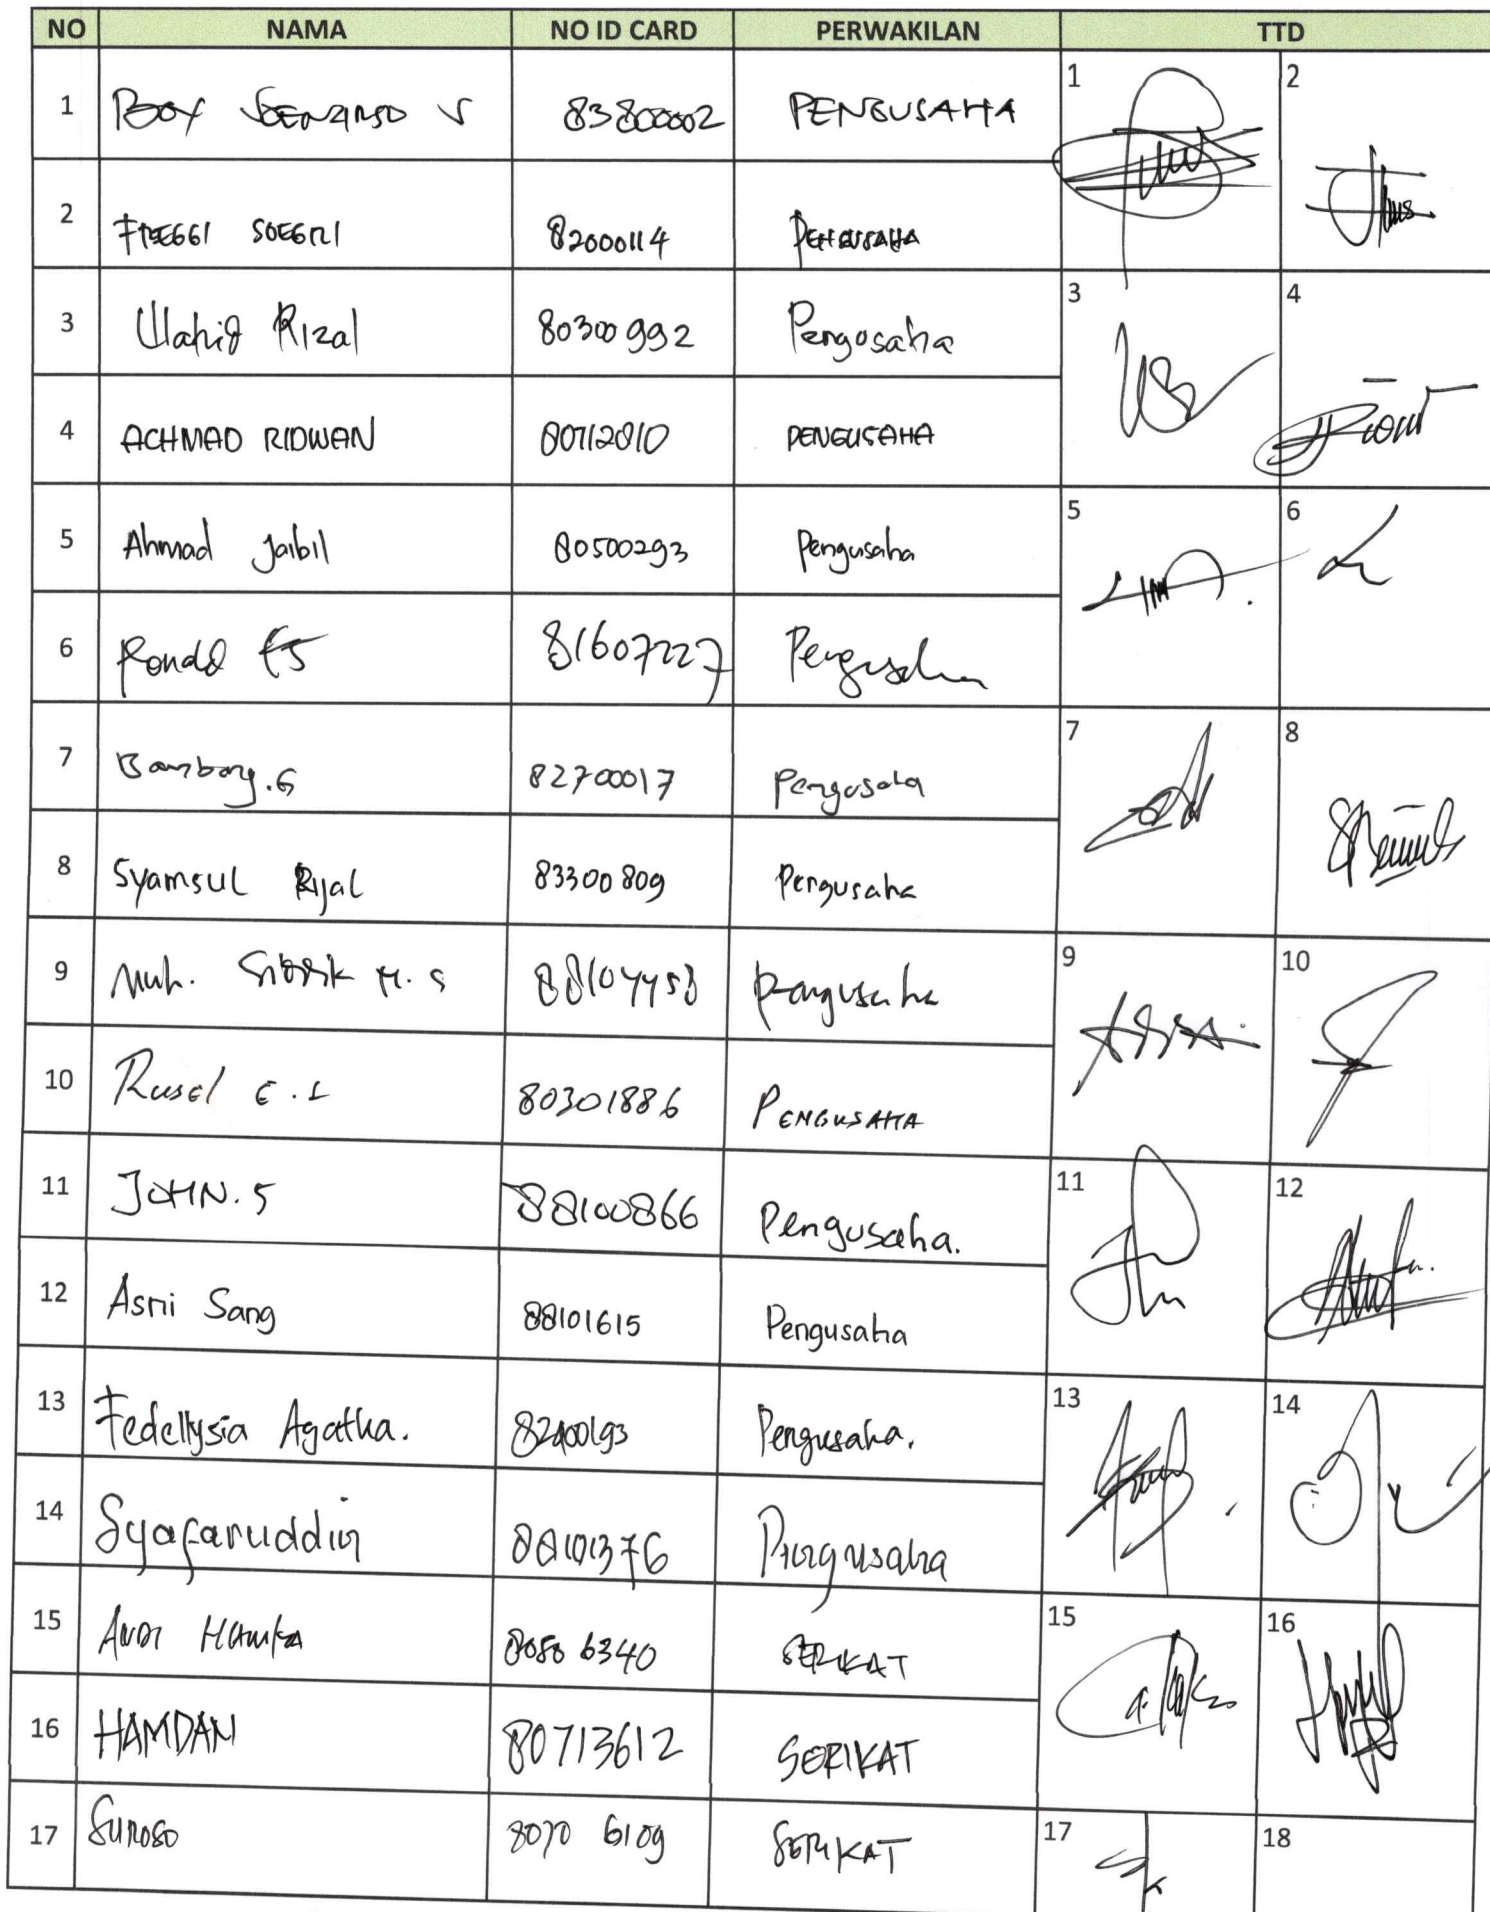 NO NAMA NO ID CARD PERWAKILAN TTD
1 83800002 PENGUSAHA 1 2
2 FREGGI SOEGRI 82000114 PENGUSAHA
3 Wahid Rizal 80300992 Pengusaha 3 4
4 ACHMAD RIDWAN 80712810 PENGUSAHA
5 Ahmad Jaibil 80500293 Pengusaha 5 6
6 81607227 Pengusaha
7 Bambang.G 82700017 Pengusaha 7 8
8 Syamsul Rijal 83300809 Pengusaha
9 Muh. 88104458 Pengusaha 9 10
10 Rusel E.L 80301886 PENGUSAHA
11 JOHN.S 88100866 Pengusaha. 11 12
12 Asri Sang 88101615 Pengusaha
13 Fedellysia Agatha. 82400193 Pengusaha. 13 14
14 Syafaruddin 88101376 Pengusaha
15 Andi Hamka 8080 6340 SERIKAT 15 16
16 HAMDAN 80713612 SERIKAT
17 Suroso 8070 6109 SERIKAT 17 18